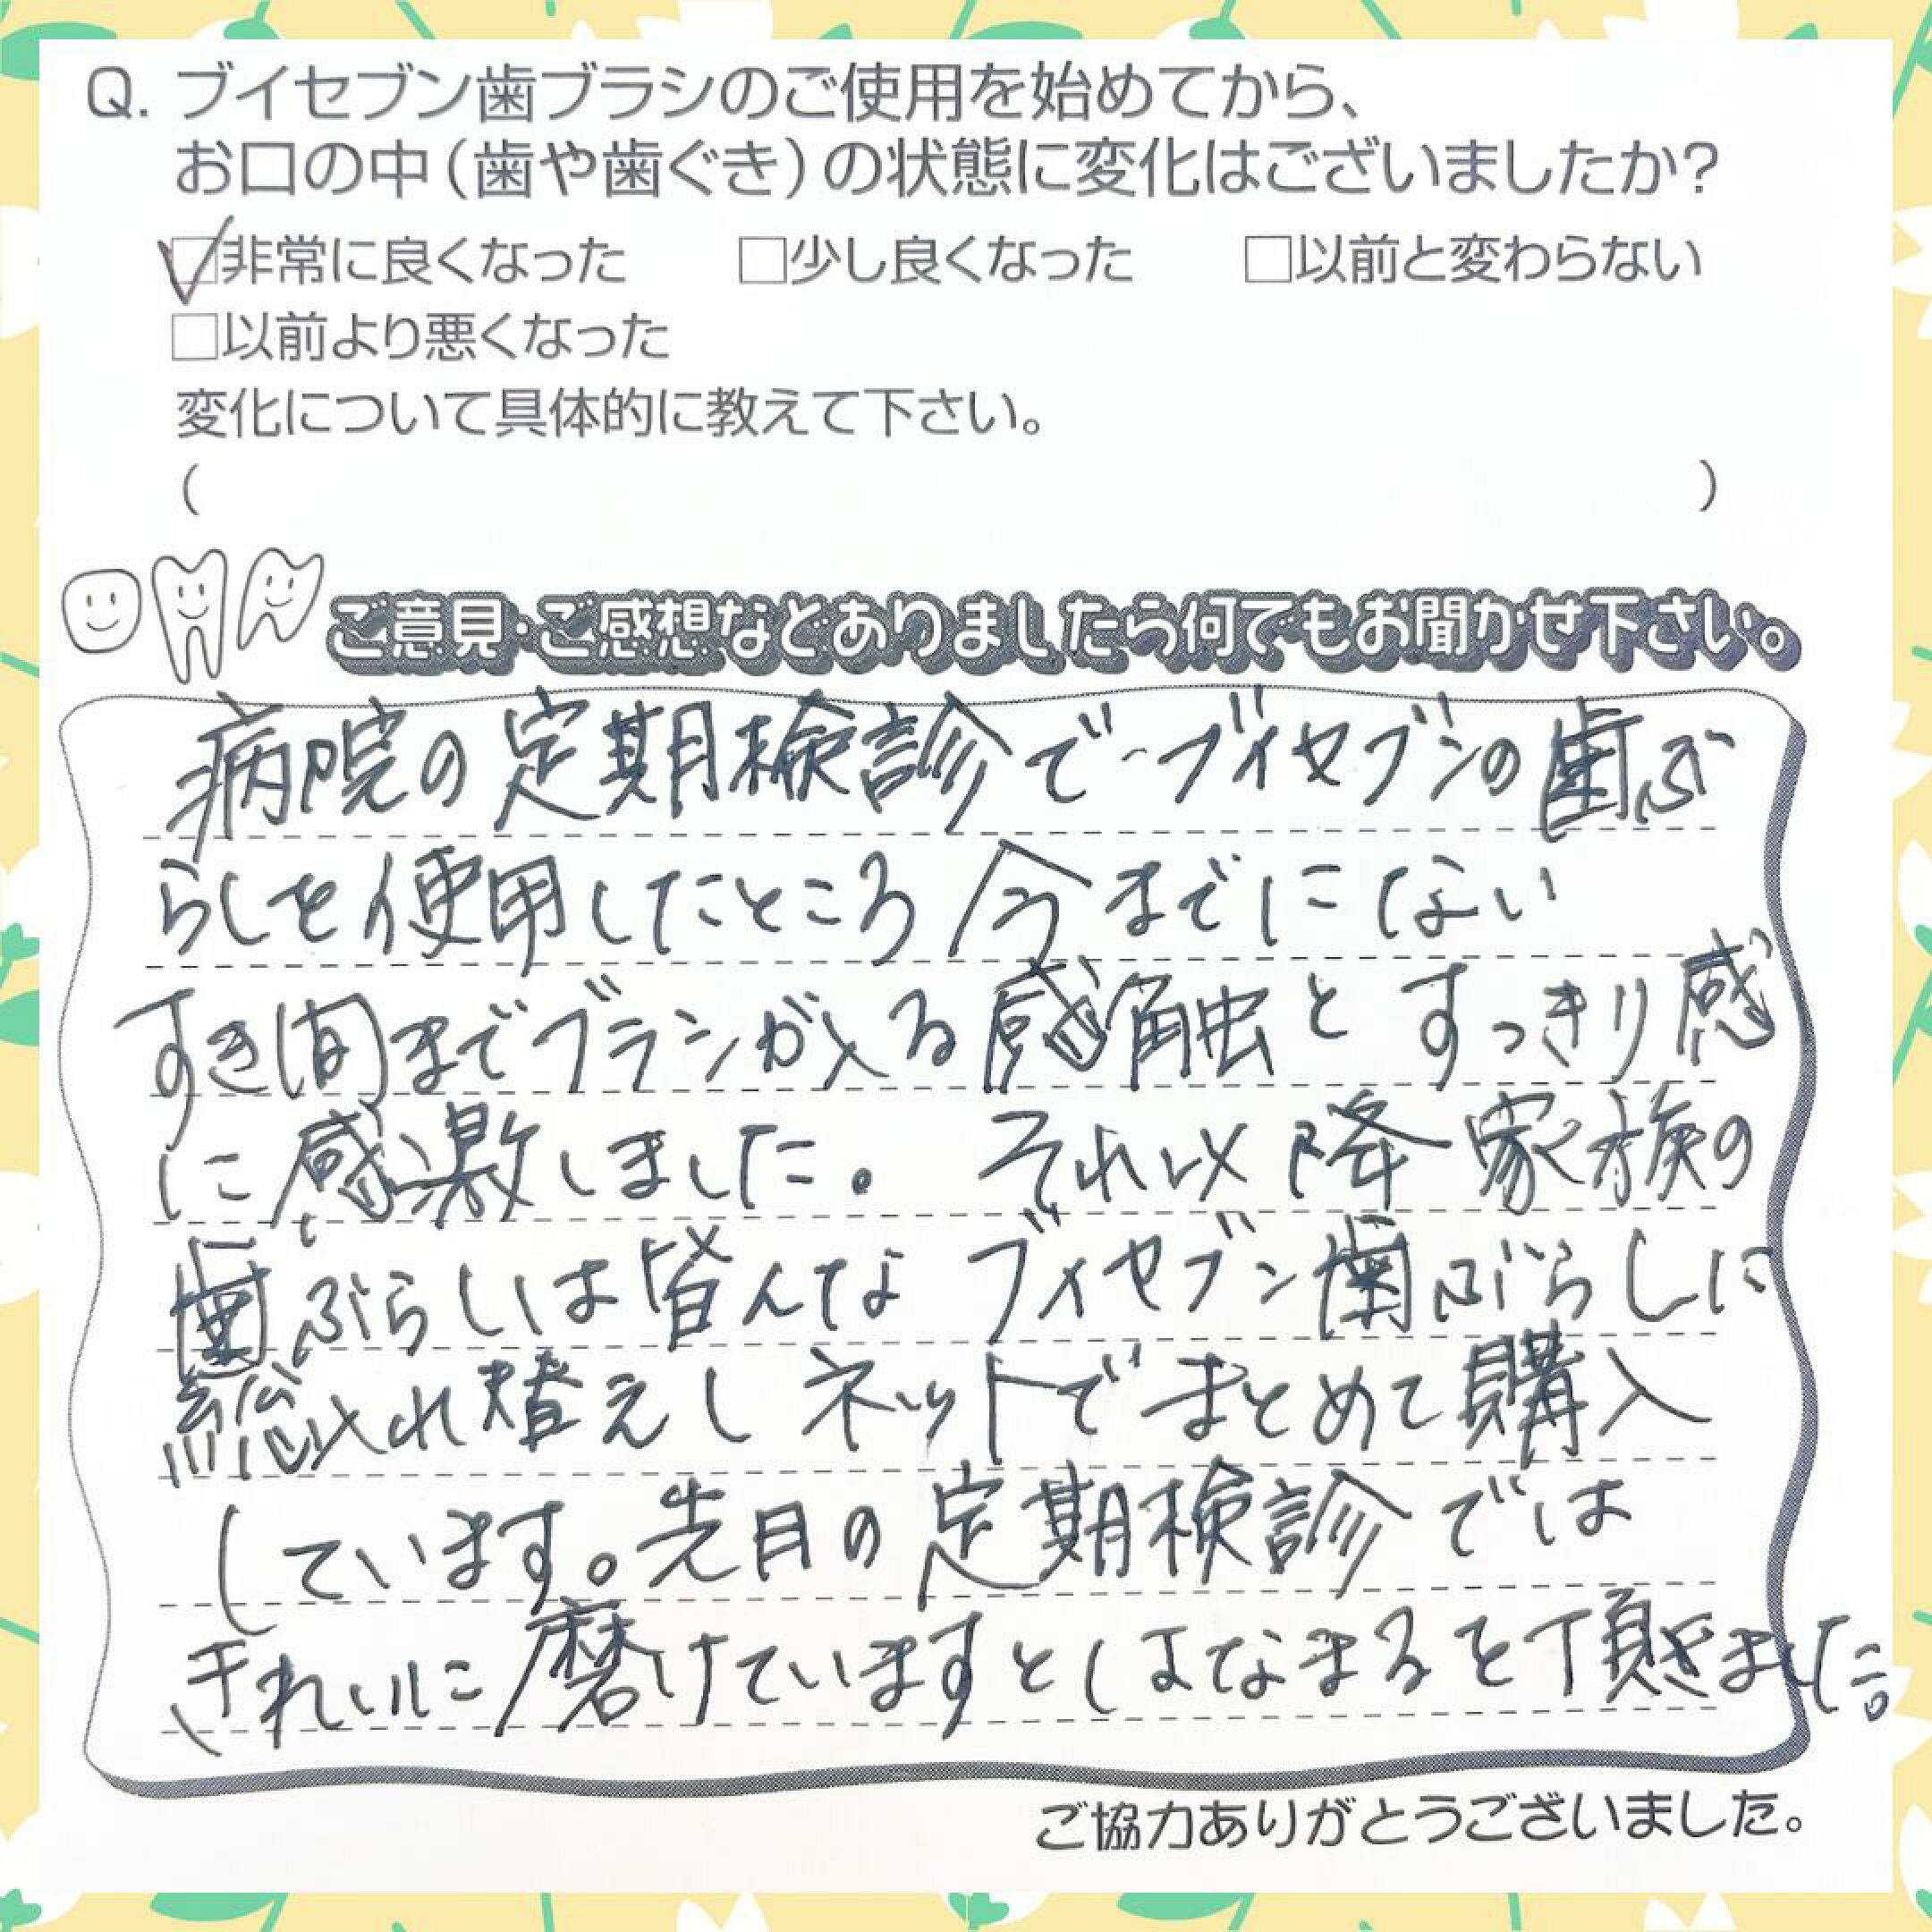 Q. ブイセブン歯ブラシのご使用を始めてから、
お口の中（歯や歯ぐき）の状態に変化はございましたか？
☑非常に良くなった □少し良くなった □以前と変わらない
□以前より悪くなった
変化について具体的に教えて下さい。
（ ）
ご意見・ご感想などありましたら何でもお聞かせ下さい。
病院の定期検診でブイセブンの歯ぶ
らしを使用したところ今までにない
すき間までブラシが入る感触とすっきり感
に感激しました。 それ以降家族の
歯ぶらしは皆んなブイセブン歯ぶらしに
総入れ替えしネットでまとめて購入
しています。先月の定期検診では
きれいに磨けていますとはなまるを頂きました。
ご協力ありがとうございました。